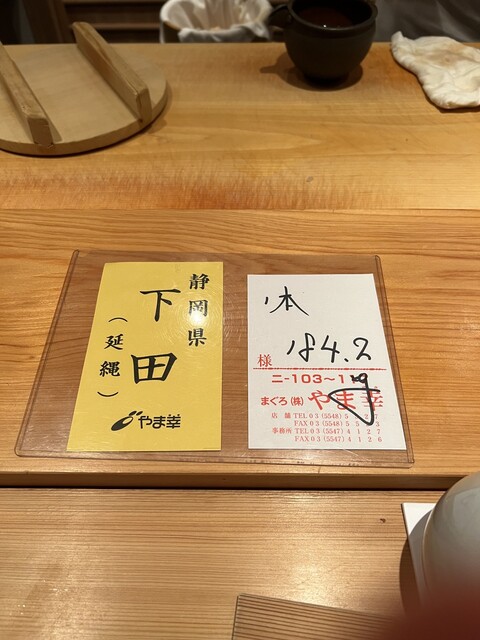 静岡県
下田
（延縄）
やま幸
本
184.2
様
ニ-103～1
まぐろ(株) やま幸
店 舗 TEL 03 (5548) 5
FAX 03 (5548) 5
事務所 TEL 03 (5547) 4127
FAX 03 (5547) 4126